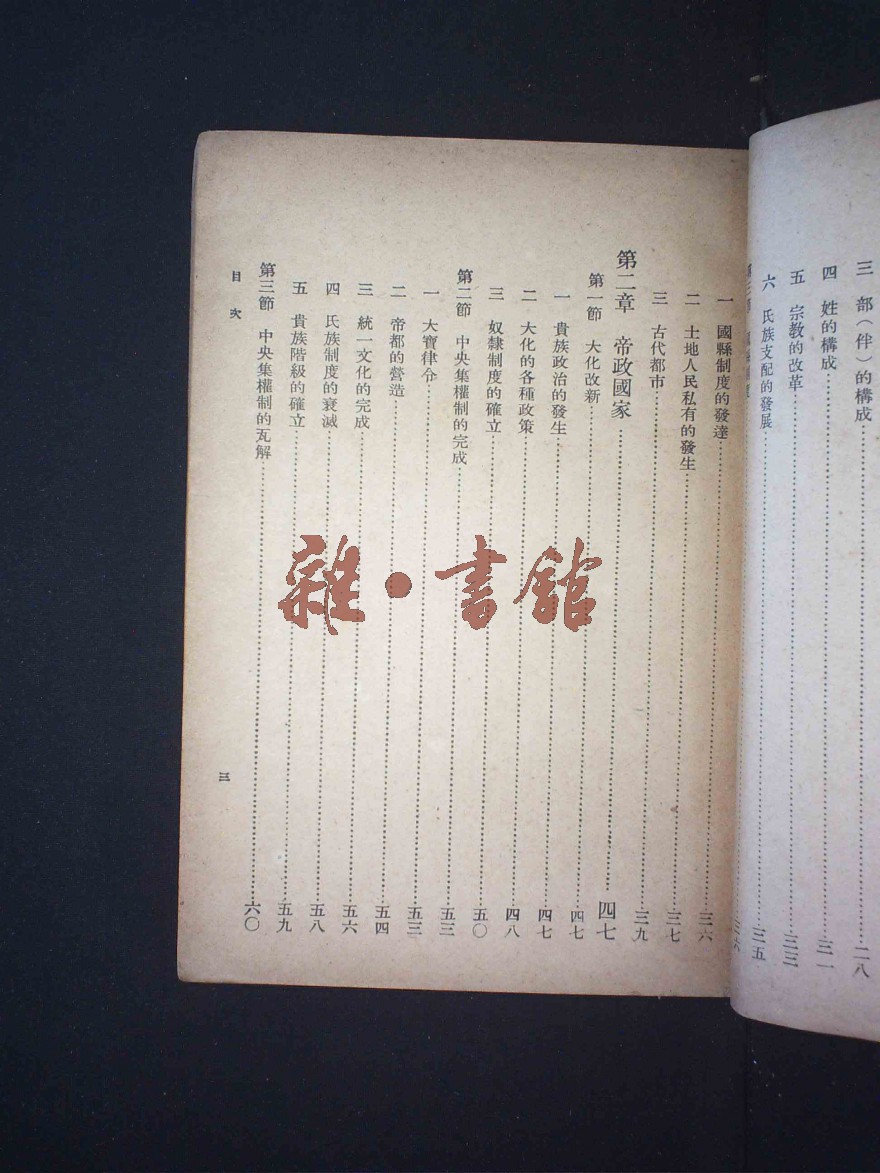 三　部（伴）的構成……二八
四　姓的構成……三一
五　宗教的改革……三三
六　氏族支配的發展……三五
一　國縣制度的發達……三六
二　土地人民私有的發生……三七
三　古代都市……三九
第二章　帝政國家……四七
第一節　大化改新……四七
一　貴族政治的發生……四七
二　大化的各種政策……四八
三　奴隸制度的確立……五〇
第二節　中央集權制的完成……五三
一　大寶律令……五三
二　帝都的營造……五四
三　統一文化的完成……五六
四　氏族制度的衰滅……五八
五　貴族階級的確立……五九
第三節　中央集權制的瓦解……六〇
目次
三
雜·書館